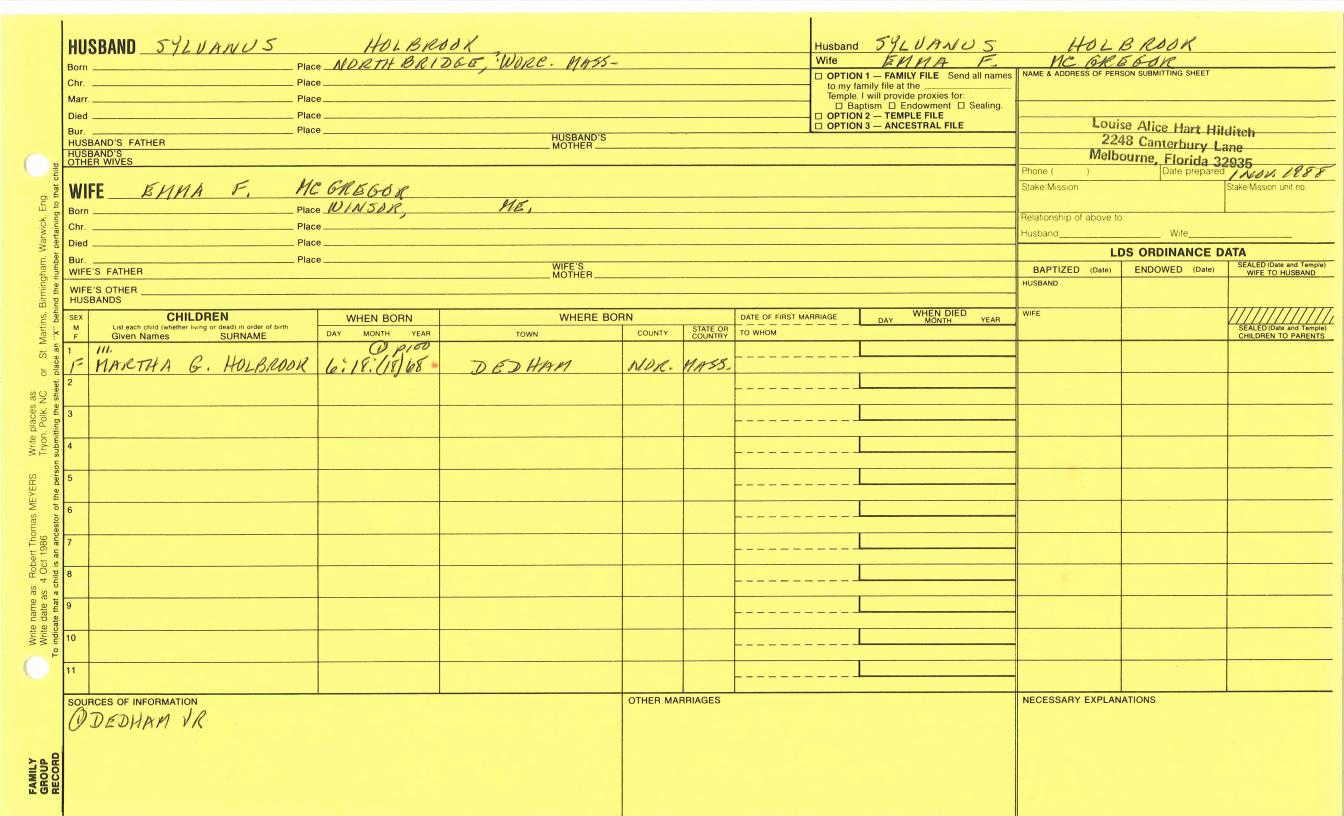 HUSBAND SYLVANUS HOLBROOK
Born Place NORTHBRIDGE, WORC. MASS-
Chr. Place
Marr Place
Died Place
Bur. Place
HUSBAND'S FATHER HUSBAND'S MOTHER
HUSBAND'S OTHER WIVES
WIFE EMMA F. MCGREGOR
Born Place WINSOR, ME,
Chr. Place
Died Place
Bur. Place
WIFE'S FATHER WIFE'S MOTHER
WIFE'S OTHER HUSBANDS
Husband SYLVANUS HOLBROOK
Wife EMMA F. MCGREGOR
☐ OPTION 1 — FAMILY FILE Send all names
to my family file at the
Temple. I will provide proxies for:
☐ Baptism ☐ Endowment ☐ Sealing.
☐ OPTION 2 — TEMPLE FILE
☐ OPTION 3 — ANCESTRAL FILE
NAME & ADDRESS OF PERSON SUBMITTING SHEET
Louise Alice Hart Hilditch
2248 Canterbury Lane
Melbourne, Florida 32935
Phone ( ) Date prepared 1 NOV. 1988
Stake/Mission Stake/Mission unit no.
Relationship of above to:
Husband Wife
LDS ORDINANCE DATA
BAPTIZED (Date) ENDOWED (Date) SEALED (Date and Temple) WIFE TO HUSBAND
HUSBAND
WIFE
SEALED (Date and Temple) CHILDREN TO PARENTS
SEX M F
CHILDREN
List each child (whether living or dead) in order of birth
Given Names SURNAME
WHEN BORN
DAY MONTH YEAR
WHERE BORN
TOWN COUNTY STATE OR COUNTRY
DATE OF FIRST MARRIAGE
TO WHOM
WHEN DIED
DAY MONTH YEAR
1 ill. ① p100
F MARTHA G. HOLBROOK 6:18:(18)68 DEDHAM NOR. MASS.
2
3
4
5
6
7
8
9
10
11
SOURCES OF INFORMATION
① DEDHAM VR
OTHER MARRIAGES
NECESSARY EXPLANATIONS
Write name as Robert Thomas MEYERS Write places as Tryon, Polk, NC or St. Martins, Birmingham, Warwick, Eng.
Write date as 4 Oct 1986
To indicate that a child is an ancestor of the person submitting the sheet, place an "X" behind the number pertaining to that child.
FAMILY
GROUP
RECORD